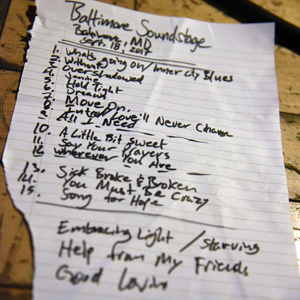 Baltimore Soundstage
Baltimore, MD
Sept. 18, 2017
1. Whats going on/Inner City Blues
2. Without
3. Overshadowed
4.
5. Hold Tight
6. Dream
7. Move On.
8. Love'll Never Change
9. All I Need
10. A Little Bit Sweet
11. Say Your Prayers
12 Wherever You Are
13. Sick Broke & Broken
14. You Must Be Crazy
15. Song for Hope
Embracing Light / Starving
Help from My Friends
Good Lovin